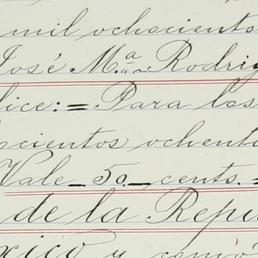 mil ochocientos
José M.ª Rodrig
dice:= Para los
scientos ochent
Vale 50 cents.=
de la Repu
xico y como